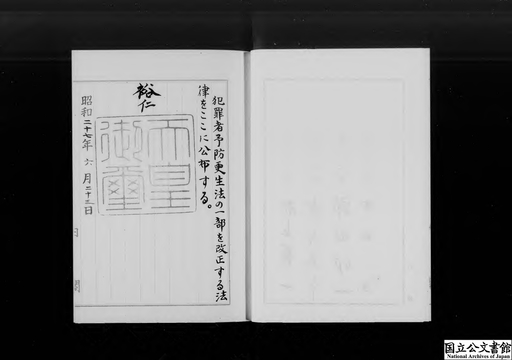 犯罪者予防更生法の一部を改正する法
律をここに公布する。
裕仁
天皇
御璽
昭和二十七年六月二十三日
国立公文書館
National Archives of Japan